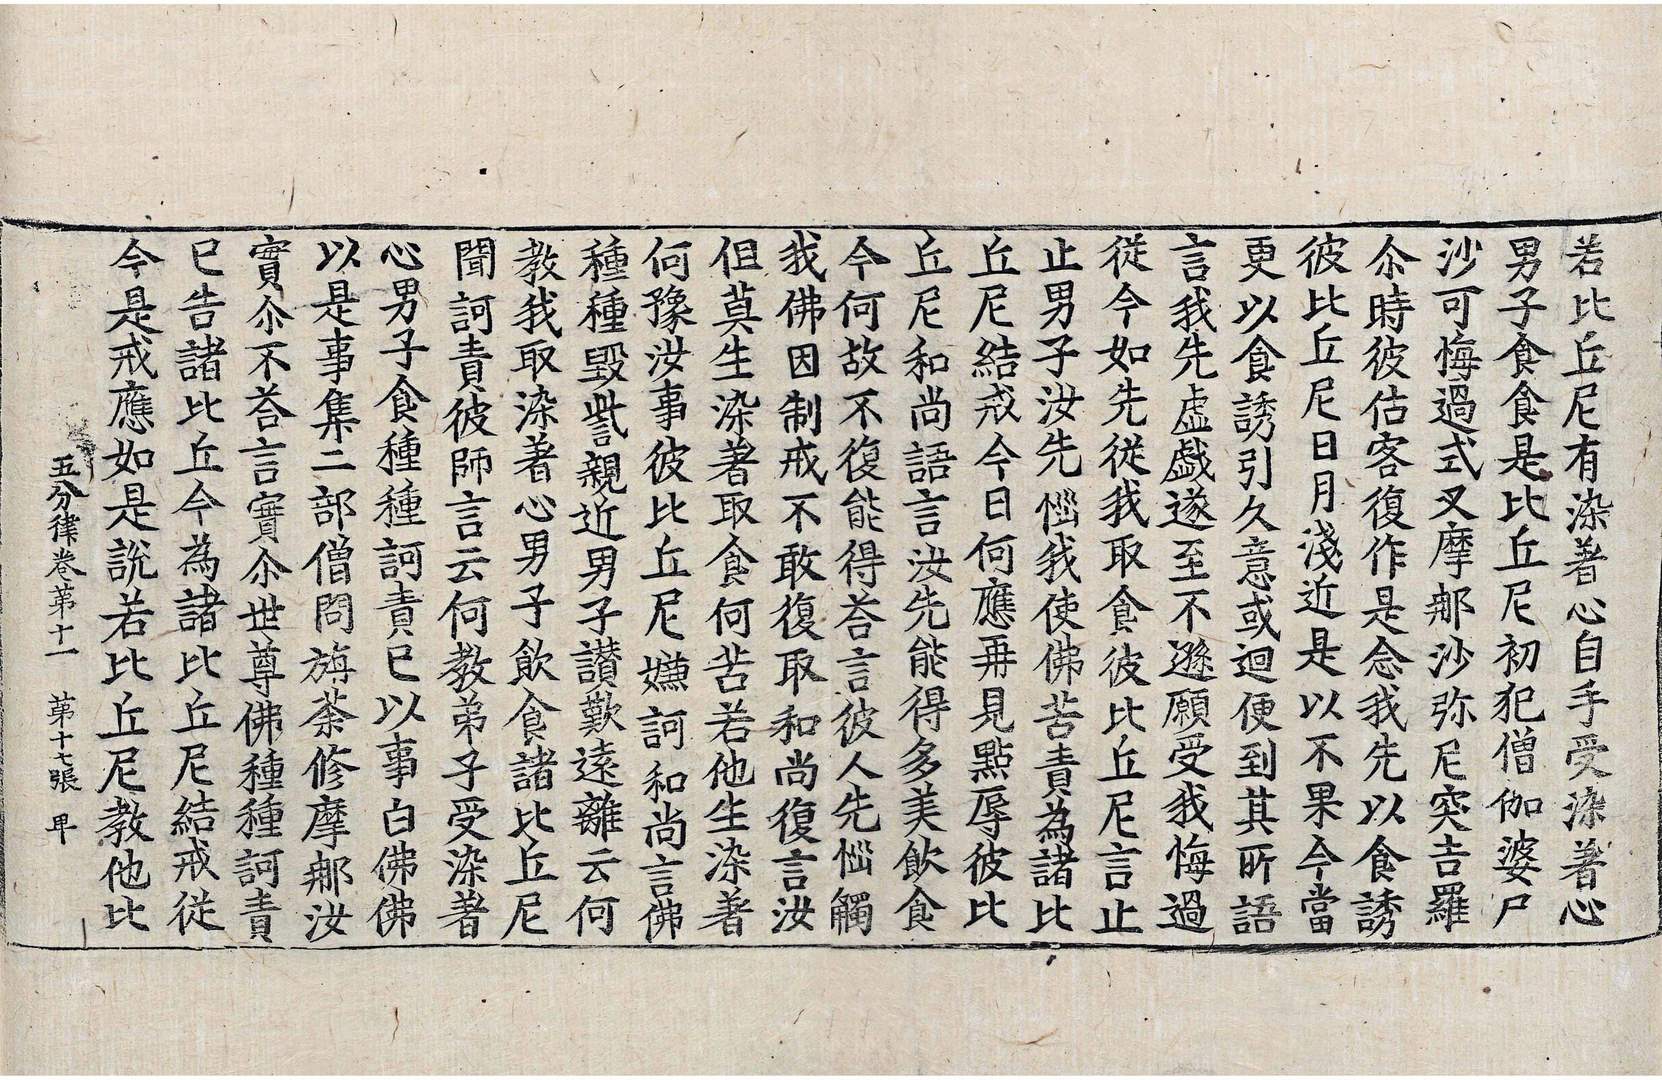 若比丘尼有染著心自手受染著心
男子食食是比丘尼初犯僧伽婆尸
沙可悔過式叉摩那沙弥尼突吉羅
尒時彼估客復作是念我先以食誘
彼比丘尼日月淺近是以不果今當
更以食誘引久意或迴便到其所語
言我先虛戲遂至不遜願受我悔過
從今如先從我取食彼比丘尼言止
止男子汝先惱我使佛苦責為諸比
丘尼結戒今日何應再見點辱彼比
丘尼和尚語言汝先能得多美飲食
今何故不復能得荅言彼人先惱觸
我佛因制戒不敢復取和尚復言汝
但莫生染著取食何苦若他生染著
何豫汝事彼比丘尼嫌訶和尚言佛
種種毀呰親近男子讃歎遠離云何
教我取染著心男子飲食諸比丘尼
聞訶責彼師言云何教弟子受染著
心男子食種種訶責已以事白佛佛
以是事集二部僧問旃荼修摩那汝
實尒不荅言實尒世尊佛種種訶責
已告諸比丘今為諸比丘尼結戒從
今是戒應如是說若比丘尼教他比
五分律卷第十一　第十七張　甲